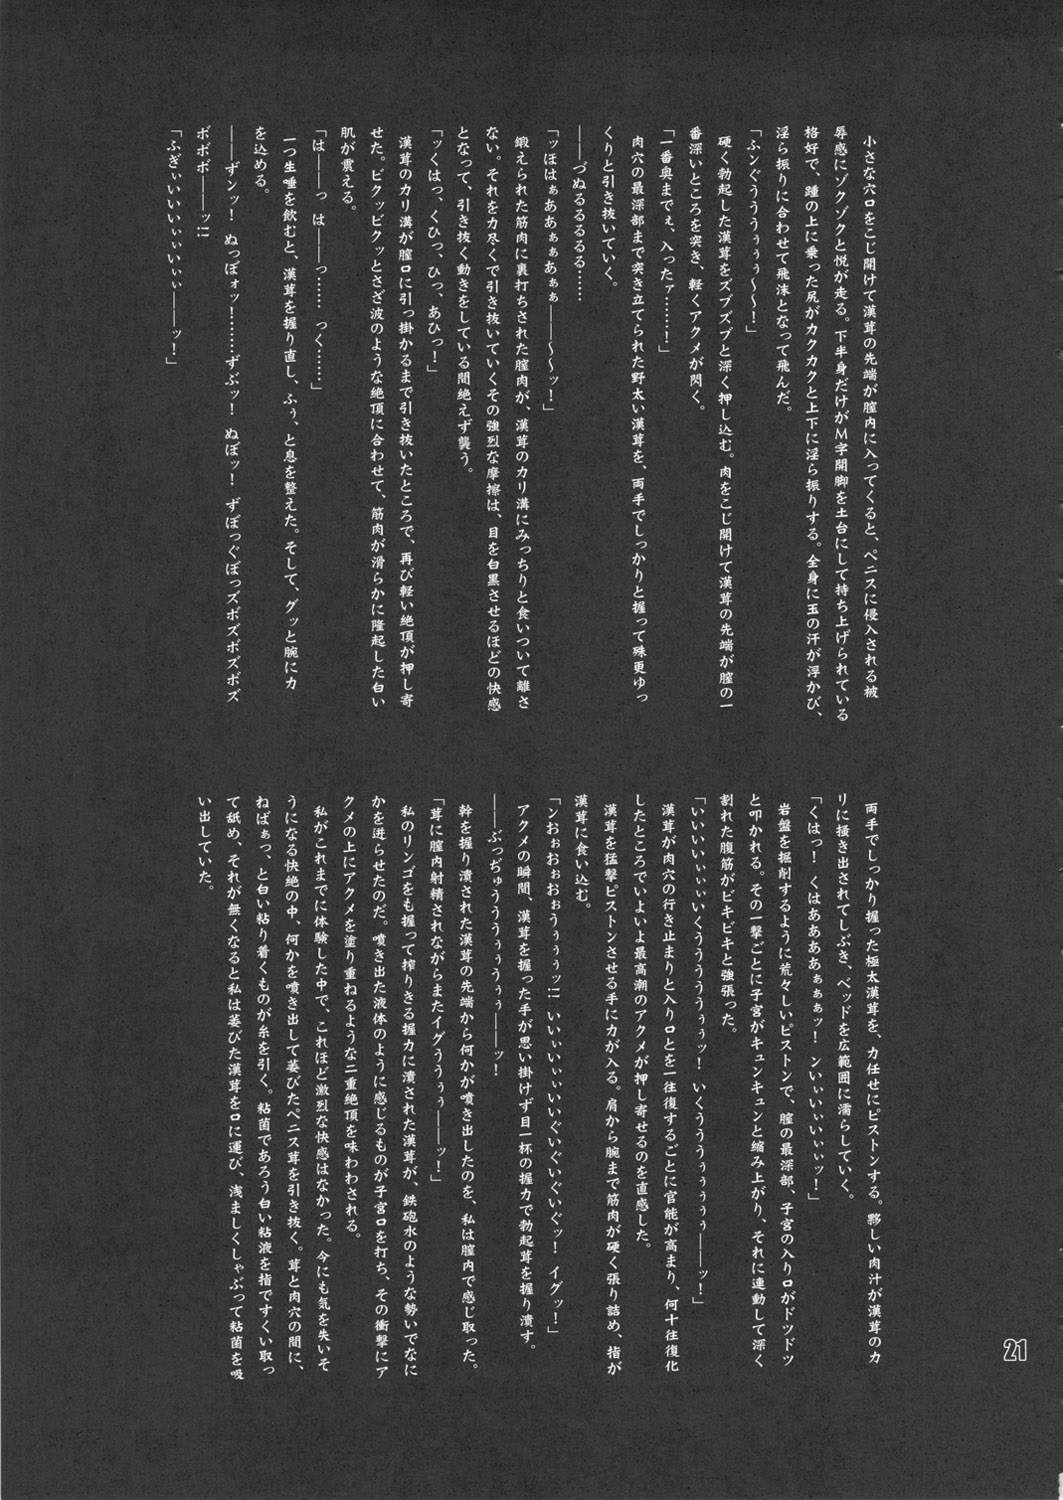 小さな穴口をこじ開けて漢茸の先端が膣内に入ってくると、ペニスに侵入される被
辱感にゾクゾクと悦が走る。下半身だけがＭ字開脚を土台にして持ち上げられている
格好で、踵の上に乗った尻がカクカクと上下に淫ら振りする。全身に玉の汗が浮かび、
淫ら振りに合わせて飛沫となって飛んだ。
「ふンぐううぅぅぅ～～！」
　硬く勃起した漢茸をズブズブと深く押し込む。肉をこじ開けて漢茸の先端が膣の一
番深いところを突き、軽くアクメが閃く。
「一番奥までぇ、入ったァ……！」
　肉穴の最深部まで突き立てられた野太い漢茸を、両手でしっかりと握って殊更ゆっ
くりと引き抜いていく。
――づぬるるるる……
「ッほはぁああぁぁあぁぁ――～～ッ！」
　鍛えられた筋肉に裏打ちされた膣肉が、漢茸のカリ溝にみっちりと食いついて離さ
ない。それを力尽くで引き抜いていくその強烈な摩擦は、目を白黒させるほどの快感
となって、引き抜く動きをしている間絶えず襲う。
「ッくはっ、くひっ、ひっ、あひっ！」
　漢茸のカリ溝が膣口に引っ掛かるまで引き抜いたところで、再び軽い絶頂が押し寄
せた。ビクッビクッとさざ波のような絶頂に合わせて、筋肉が滑らかに隆起した白い
肌が震える。
「は――っ　は――っ……　っく……」
　一つ生唾を飲むと、漢茸を握り直し、ふぅ、と息を整えた。そして、グッと腕に力
を込める。
――ずンッ！　ぬっぽォッ！……ずぶッ！　ぬぽッ！　ずぼっぐぼっズボズボズボズ
ボボボ――ッ!!
「ふぎぃいいいぃぃいぃぃ――ッ！」
　両手でしっかり握った極太漢茸を、力任せにピストンする。夥しい肉汁が漢茸のカ
リに掻き出されてしぶき、ベッドを広範囲に濡らしていく。
「くはっ！　くはああああぁぁッ！　ンいぃいぃいぃぃッ！」
　岩盤を掘削するように荒々しいピストンで、膣の最深部、子宮の入り口がドツドツ
と叩かれる。その一撃ごとに子宮がキュンキュンと縮み上がり、それに連動して深く
割れた腹筋がビキビキと強張った。
「いいいいぃぃぃいくうううぅぅッ！　いくうううぅぅぅぅ――ッ！」
　漢茸が肉穴の行き止まりと入り口とを一往復するごとに官能が高まり、何十往復化
したところでいよいよ最高潮のアクメが押し寄せるのを直感した。
　漢茸を猛撃ピストンさせる手に力が入る。肩から腕まで筋肉が硬く張り詰め、指が
漢茸に食い込む。
「ンおぉおぉおぉうぅぅぅッ!!　いいぃいぃいぃいいぐいぐいぐッ！　イグッ！」
　アクメの瞬間、漢茸を握った手が思い掛けず目一杯の握力で勃起茸を握り潰す。
――ぶっぢゅうううぅぅうぅぅ――ッ！
　幹を握り潰された漢茸の先端から何かが噴き出したのを、私は膣内で感じ取った。
「茸に膣内射精されながらまたイグうううぅ――ッ！」
　私のリンゴをも握って搾りきる握力に潰された漢茸が、鉄砲水のような勢いでなに
かを迸らせたのだ。噴き出た液体のように感じるものが子宮口を打ち、その衝撃にア
クメの上にアクメを塗り重ねるような二重絶頂を味わわされる。
　私がこれまでに体験した中で、これほど激烈な快感はなかった。今にも気を失いそ
うになる快絶の中、何かを噴き出して萎びたペニス茸を引き抜く。茸と肉穴の間に、
ねばぁっ、と白い粘り着くものが糸を引く。粘菌であろう白い粘液を指ですくい取っ
て舐め、それが無くなると私は萎びた漢茸を口に運び、浅ましくしゃぶって粘菌を吸
い出していた。
21